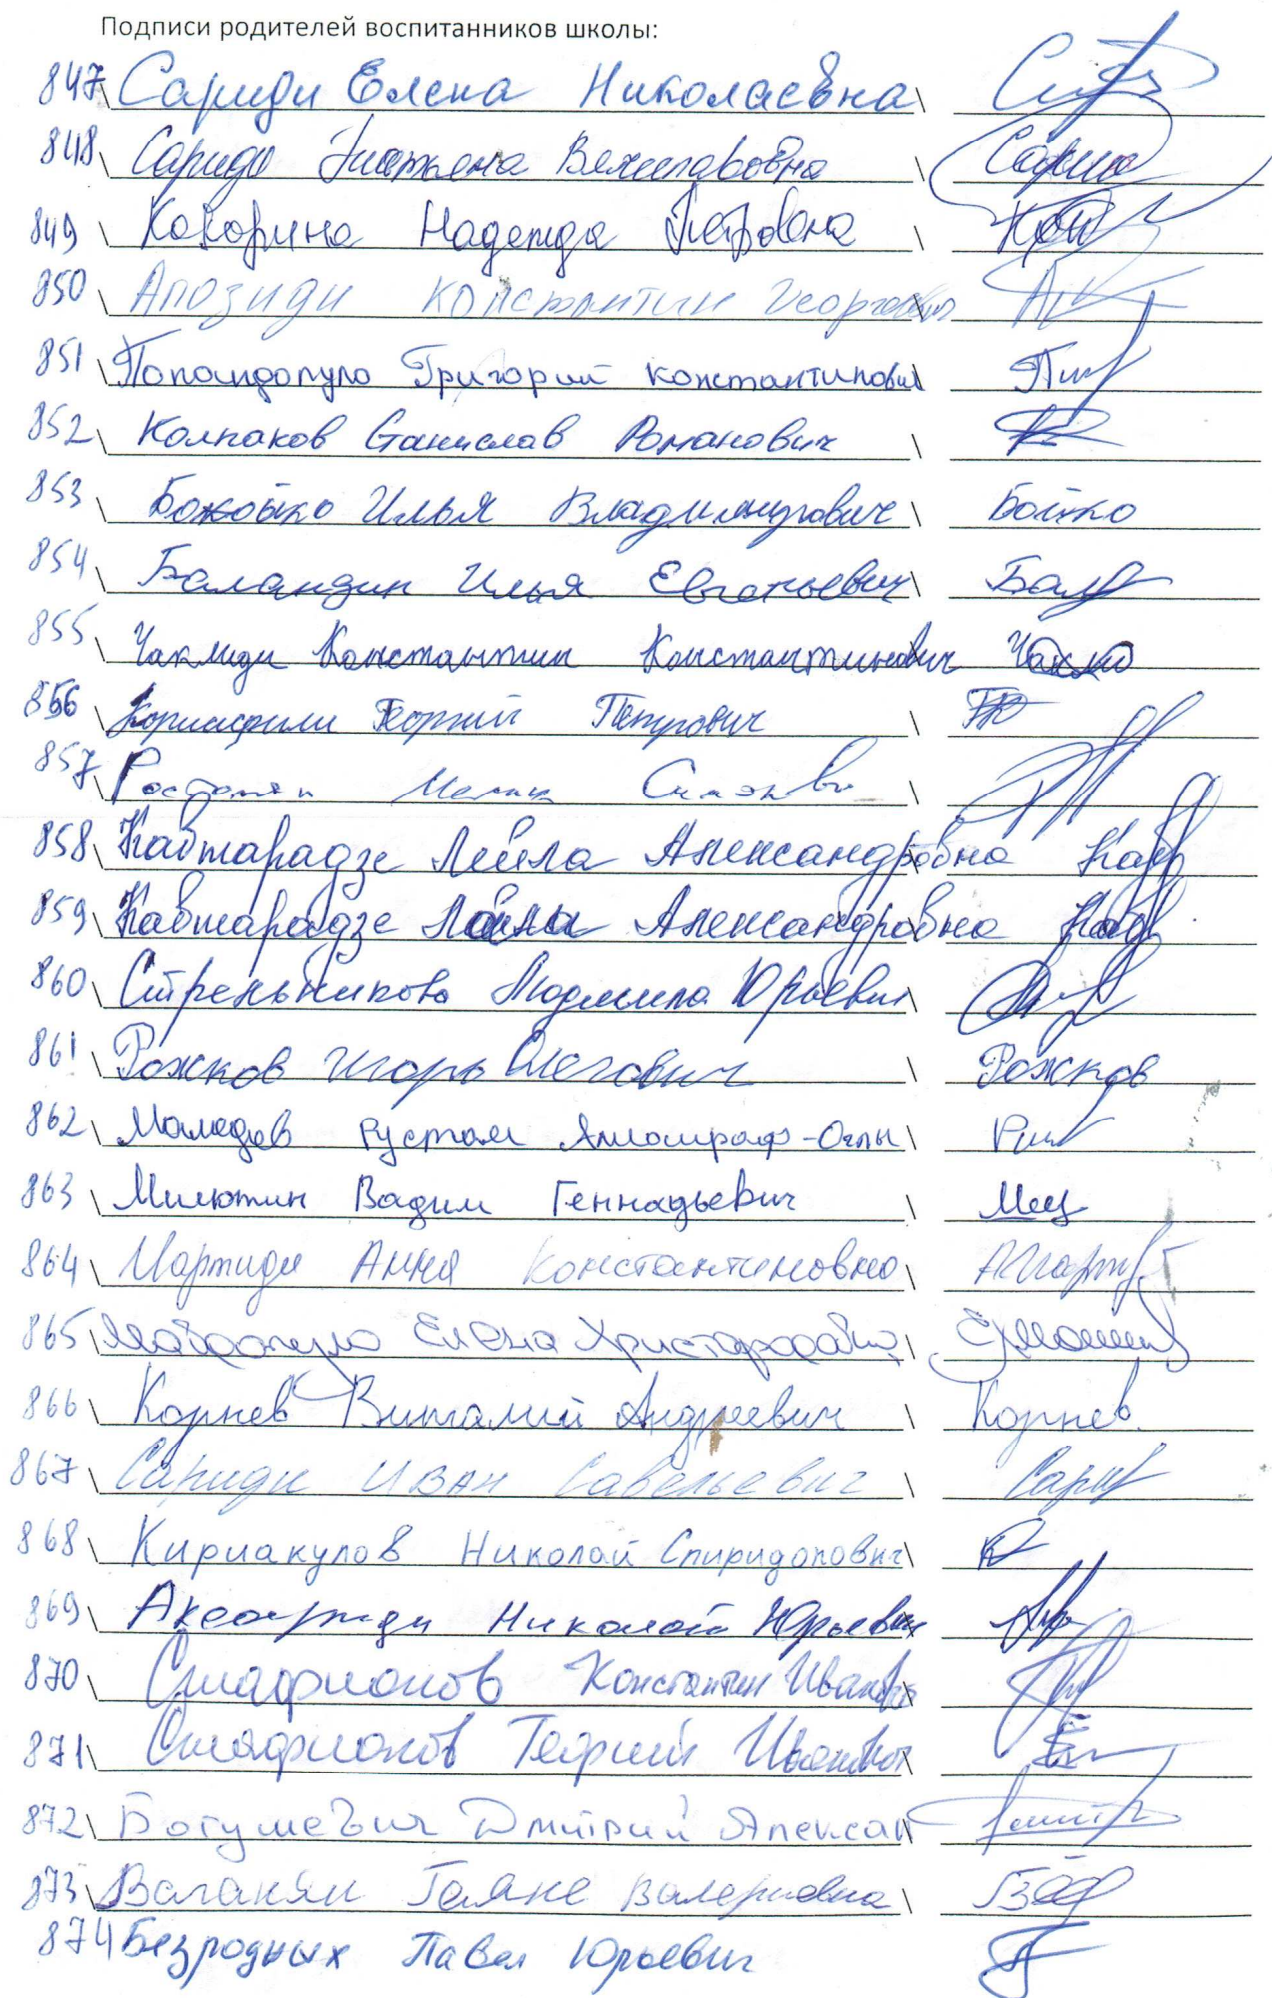 Подписи родителей воспитанников школы:
847 Сариди Елена Николаевна
848 Сариди Татьяна Вячеславовна Сариди
849 Кокорина Надежда Петровна
850 Апозиди Константин Георгиевич
851 Попандопуло Григорий Константинович
852 Колпаков Станислав Романович
853 Божойко Илья Владимирович Бойко
854 Баландин Илья Евгеньевич Бал
855 Чаклиди Константин Константинович
856 Георгий Петрович
857
858 Кавтарадзе Лейла Александровна Кав
859 Кавтарадзе Александровна Кав
860 Стрельникова Людмила Юрьевн
861 Рожков Игорь Олегович Рожков
862 Мамедов Рустам -Оглы
863 Милютин Вадим Геннадьевич
864 Мартиди Анна Константиновна
865 Мавропуло Елена Христофоровна
866 Корнев Виталий Андреевич Корнев
867 Сариди Иван Савельевич Сари
868 Кириакулов Николай Спиридонович
869 Аксариди Николай Юрьевич
870 Стафионов Константин Иванович
871 Стафионов Георгий Иванович
872 Богушевич Дмитрий Алексан
873 Ваганян Гаяне Валериевна
874 Безродных Павел Юрьевич